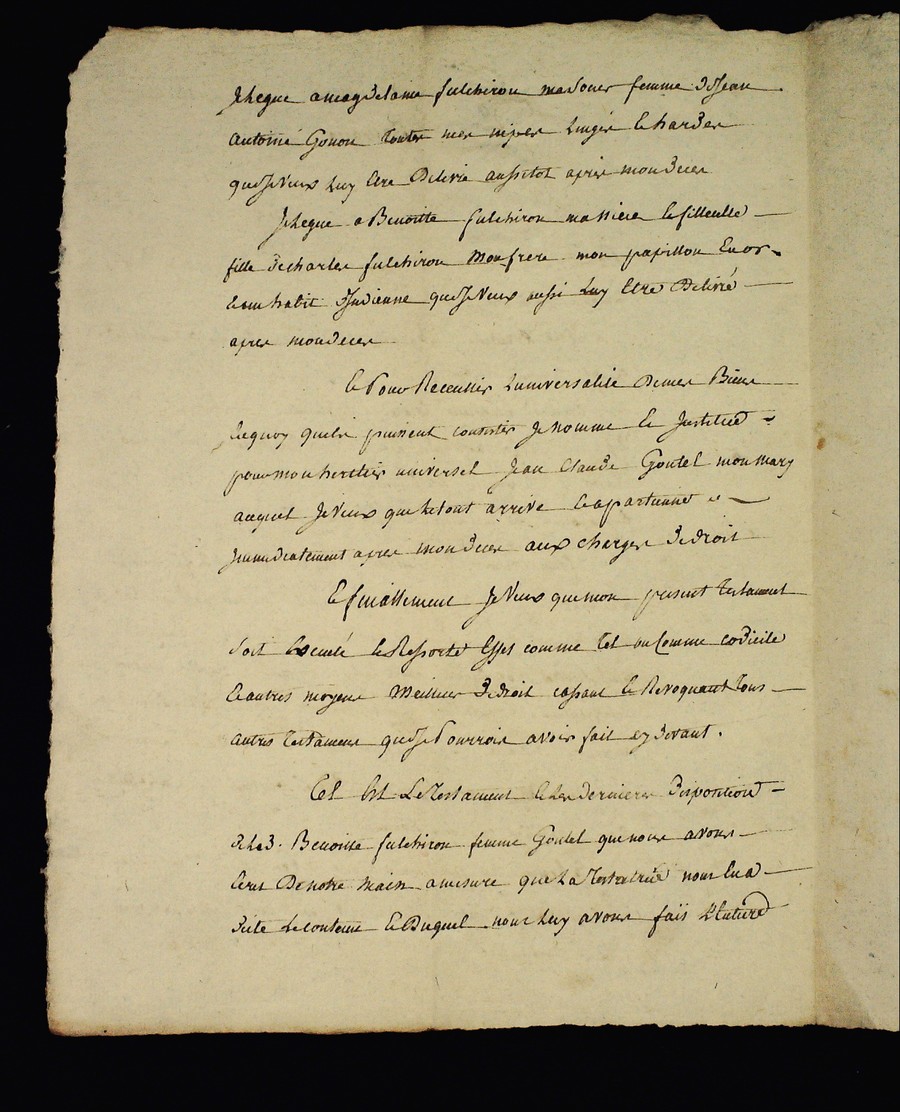 Je legue a magdelaine fulchiron ma soeur femme d Jean
Antoine Gonon toutes mes nipes linges et hardes
que Je veux luy etre delivré aussitot apres mon deces
Je legue a Benoitte fulchiron ma niece et filleulle
fille de charles fulchiron mon frere mon papillon en or
et un habit d Indienne que Je veux aussi luy etre delivré
apres mon deces
et Pour Recueillir l universalité de mes Biens
en quoy quils puissent consister Je nomme et Jnstitue
pour mon heretier universel Jean Claude Goutel mon mary
auquel Je veux que le tout arrive et apartienne
Jmmediatement apres mon deces aux charges de droit
et finallement Je veux que mon present testament
soit executé et Ressorte effet comme tel ou comme codicile
et autres moyens meilleurs de droit cassant et Revoquant tous
autres testamens que Je Pourrois avoir fait cy devant .
tel est Le testament et les dernieres disposition
de la d. Benoitte fulchiron femme Goutel que nous avons
ecrit de notre main a mesure que la testatrice nous en a
dicté le contenu et duquel nous luy avons fait lecture